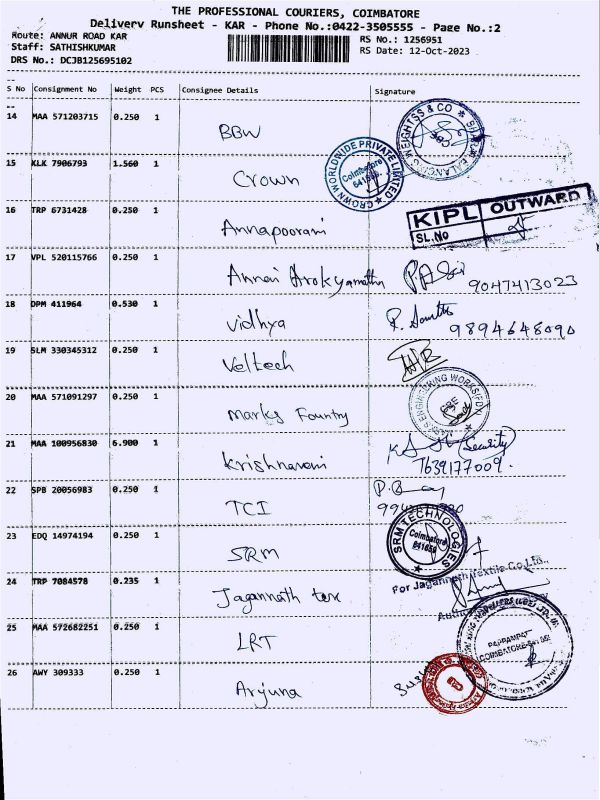 THE PROFESSIONAL COURIERS, COIMBATORE
Delivery Runsheet - KAR - Phone No.:0422-3505555 - Page No.:2
Route: ANNUR ROAD KAR
RS No.: 1256951
Staff: SATHISHKUMAR
RS Date: 12-Oct-2023
DRS No.: DCJB125695102
S No Consignment No Weight PCS Consignee Details Signature
14 MAA 571203715 0.250 1 BBW
WEIGHTSS & CO
15 KLK 7906793 1.560 1 Crown
CROWN WORLDWIDE PRIVATE LIMITED
Coimbatore
16 TRP 6731428 0.250 1 Annapoorani
KIPL OUTWARD
SL.No
17 VPL 520115766 0.250 1 Annai Arokyamatha 9047413023
18 DPM 411964 0.530 1 Vidhya 9894648090
19 SLM 330345312 0.250 1 Veltech
20 MAA 571091297 0.250 1 Marks Fountry
ENGINEERING WORKS
21 MAA 100956830 6.900 1 Krishnaveni (Security)
7639177009.
22 SPB 20056983 0.250 1 TCI
23 EDQ 14974194 0.250 1 SRM
SRM TECHNOLOGIES
Coimbatore
24 TRP 7084578 0.235 1 Jagannath tex
For Jagannath Textile Co.Ltd.,
25 MAA 572682251 0.250 1 LRT
26 AWY 309333 0.250 1 Arjuna